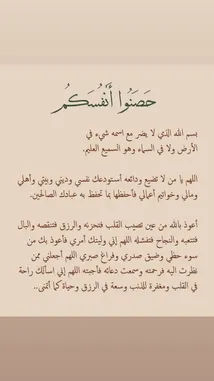 حَصِّنُوا أَنْفُسَكُم
بسم الله الذي لا يضر مع اسمه شيء في
الأرض ولا في السماء وهو السميع العليم.
اللهم يا من لا تضيع ودائعه أستودعك نفسي وديني وبيتي وأهلي
ومالي وخواتيم أعمالي فأحفظها بما تحفظ به عبادك الصالحين.
أعوذ بالله من عين تصيب القلب فتحزنه والرزق فتنقصه والبال
فتتعبه والنجاح فتفشله اللهم إني وليتك أمري فأعوذ بك من
سوء حظي وضيق صدري وفراغ صبري اللهم أجعلني ممن
نظرت اليه فرحمته وسمعت دعائه فأجبته اللهم إني اسألك راحة
في القلب ومغفرة للذنب وسعة في الرزق وحياة كما أتمنى..